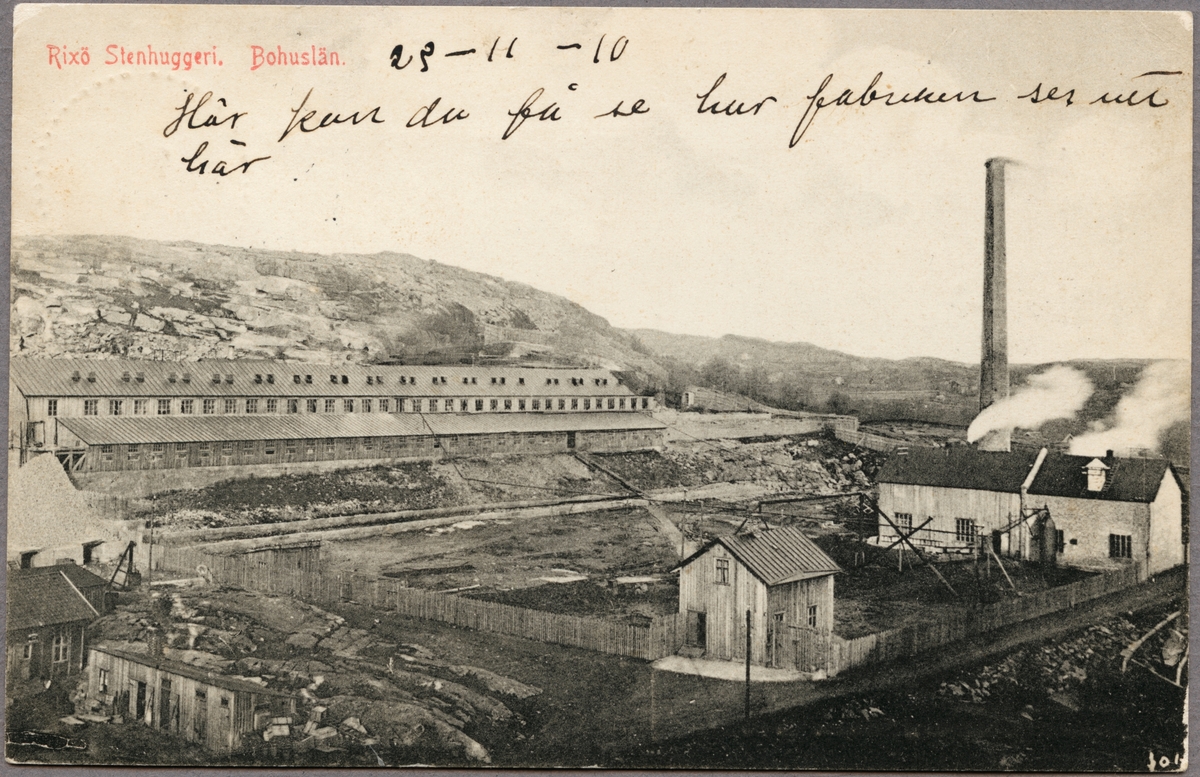 Rixö Stenhuggeri. Bohuslän.
25 – 11 – 10
Här kan du få se hur fabriken ser ut
här